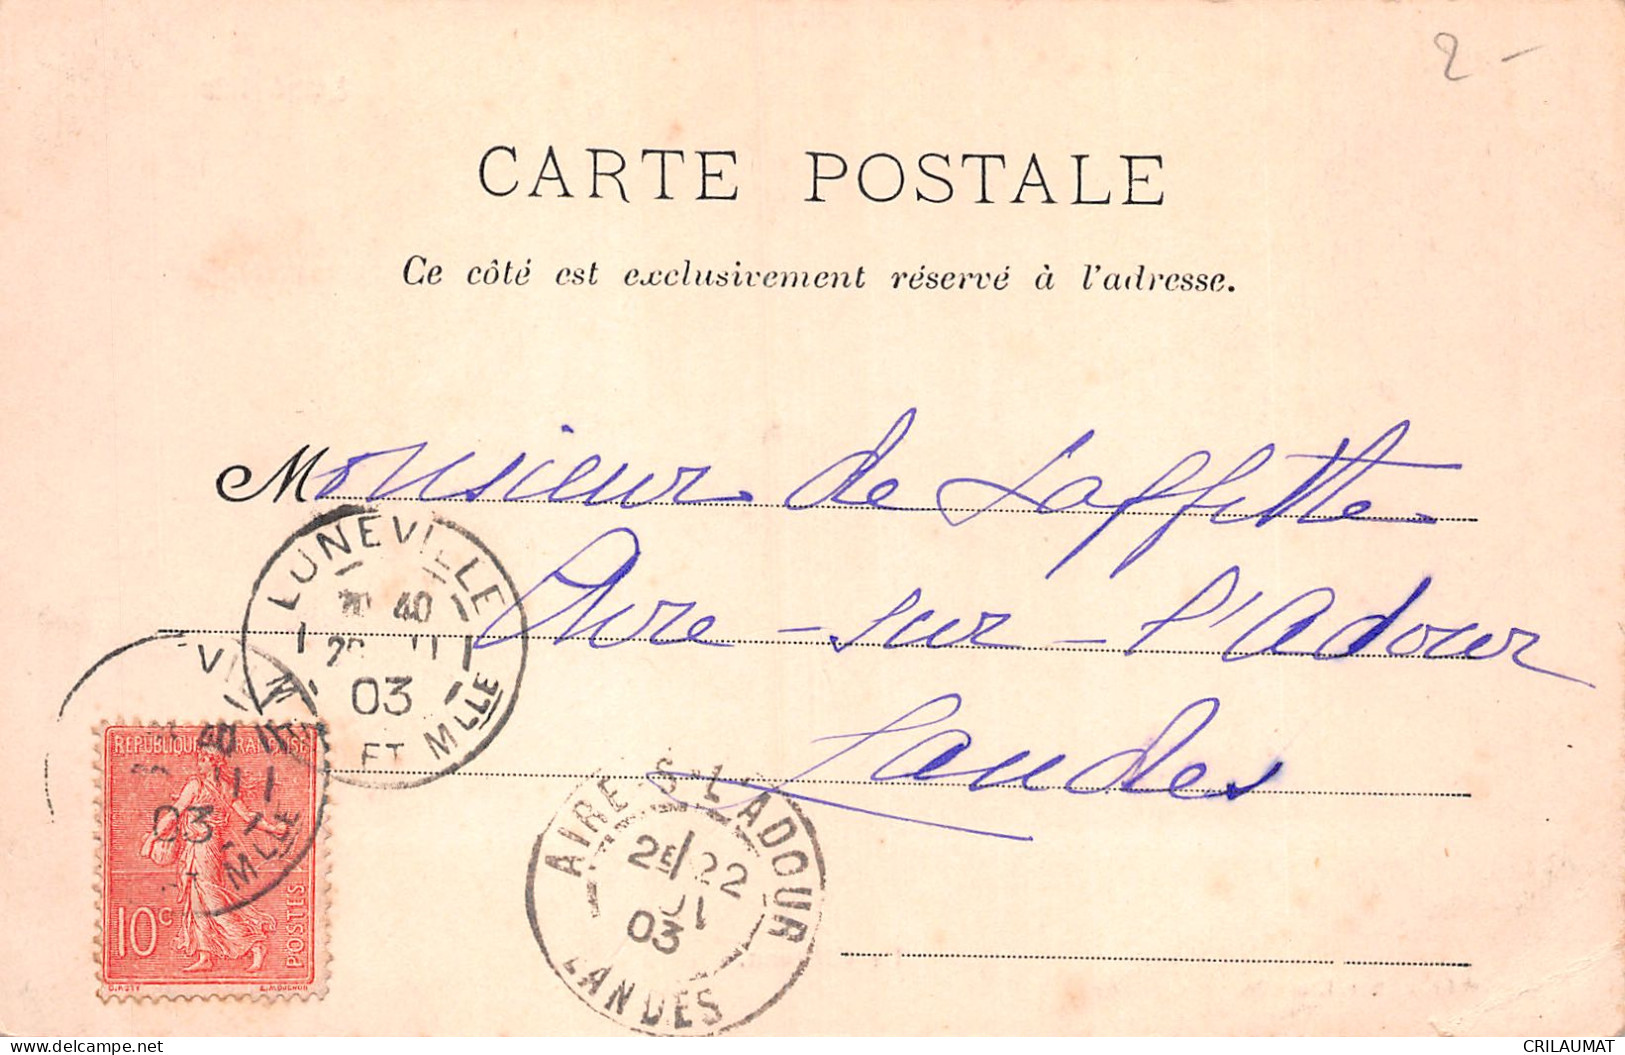 2-
CARTE POSTALE
Ce côté est exclusivement réservé à l'adresse.
Monsieur de Laffitte
Aire-sur-l'Adour
Landes
LUNEVILLE
40
03
MTHE ET MLLE
40
03
MLLE
REPUBLIQUE FRANÇAISE
10c
POSTES
O.ROTY
E.MOUCHON
AIRE-S-L'ADOUR
2E/22
03
LANDES
CRILAUMAT